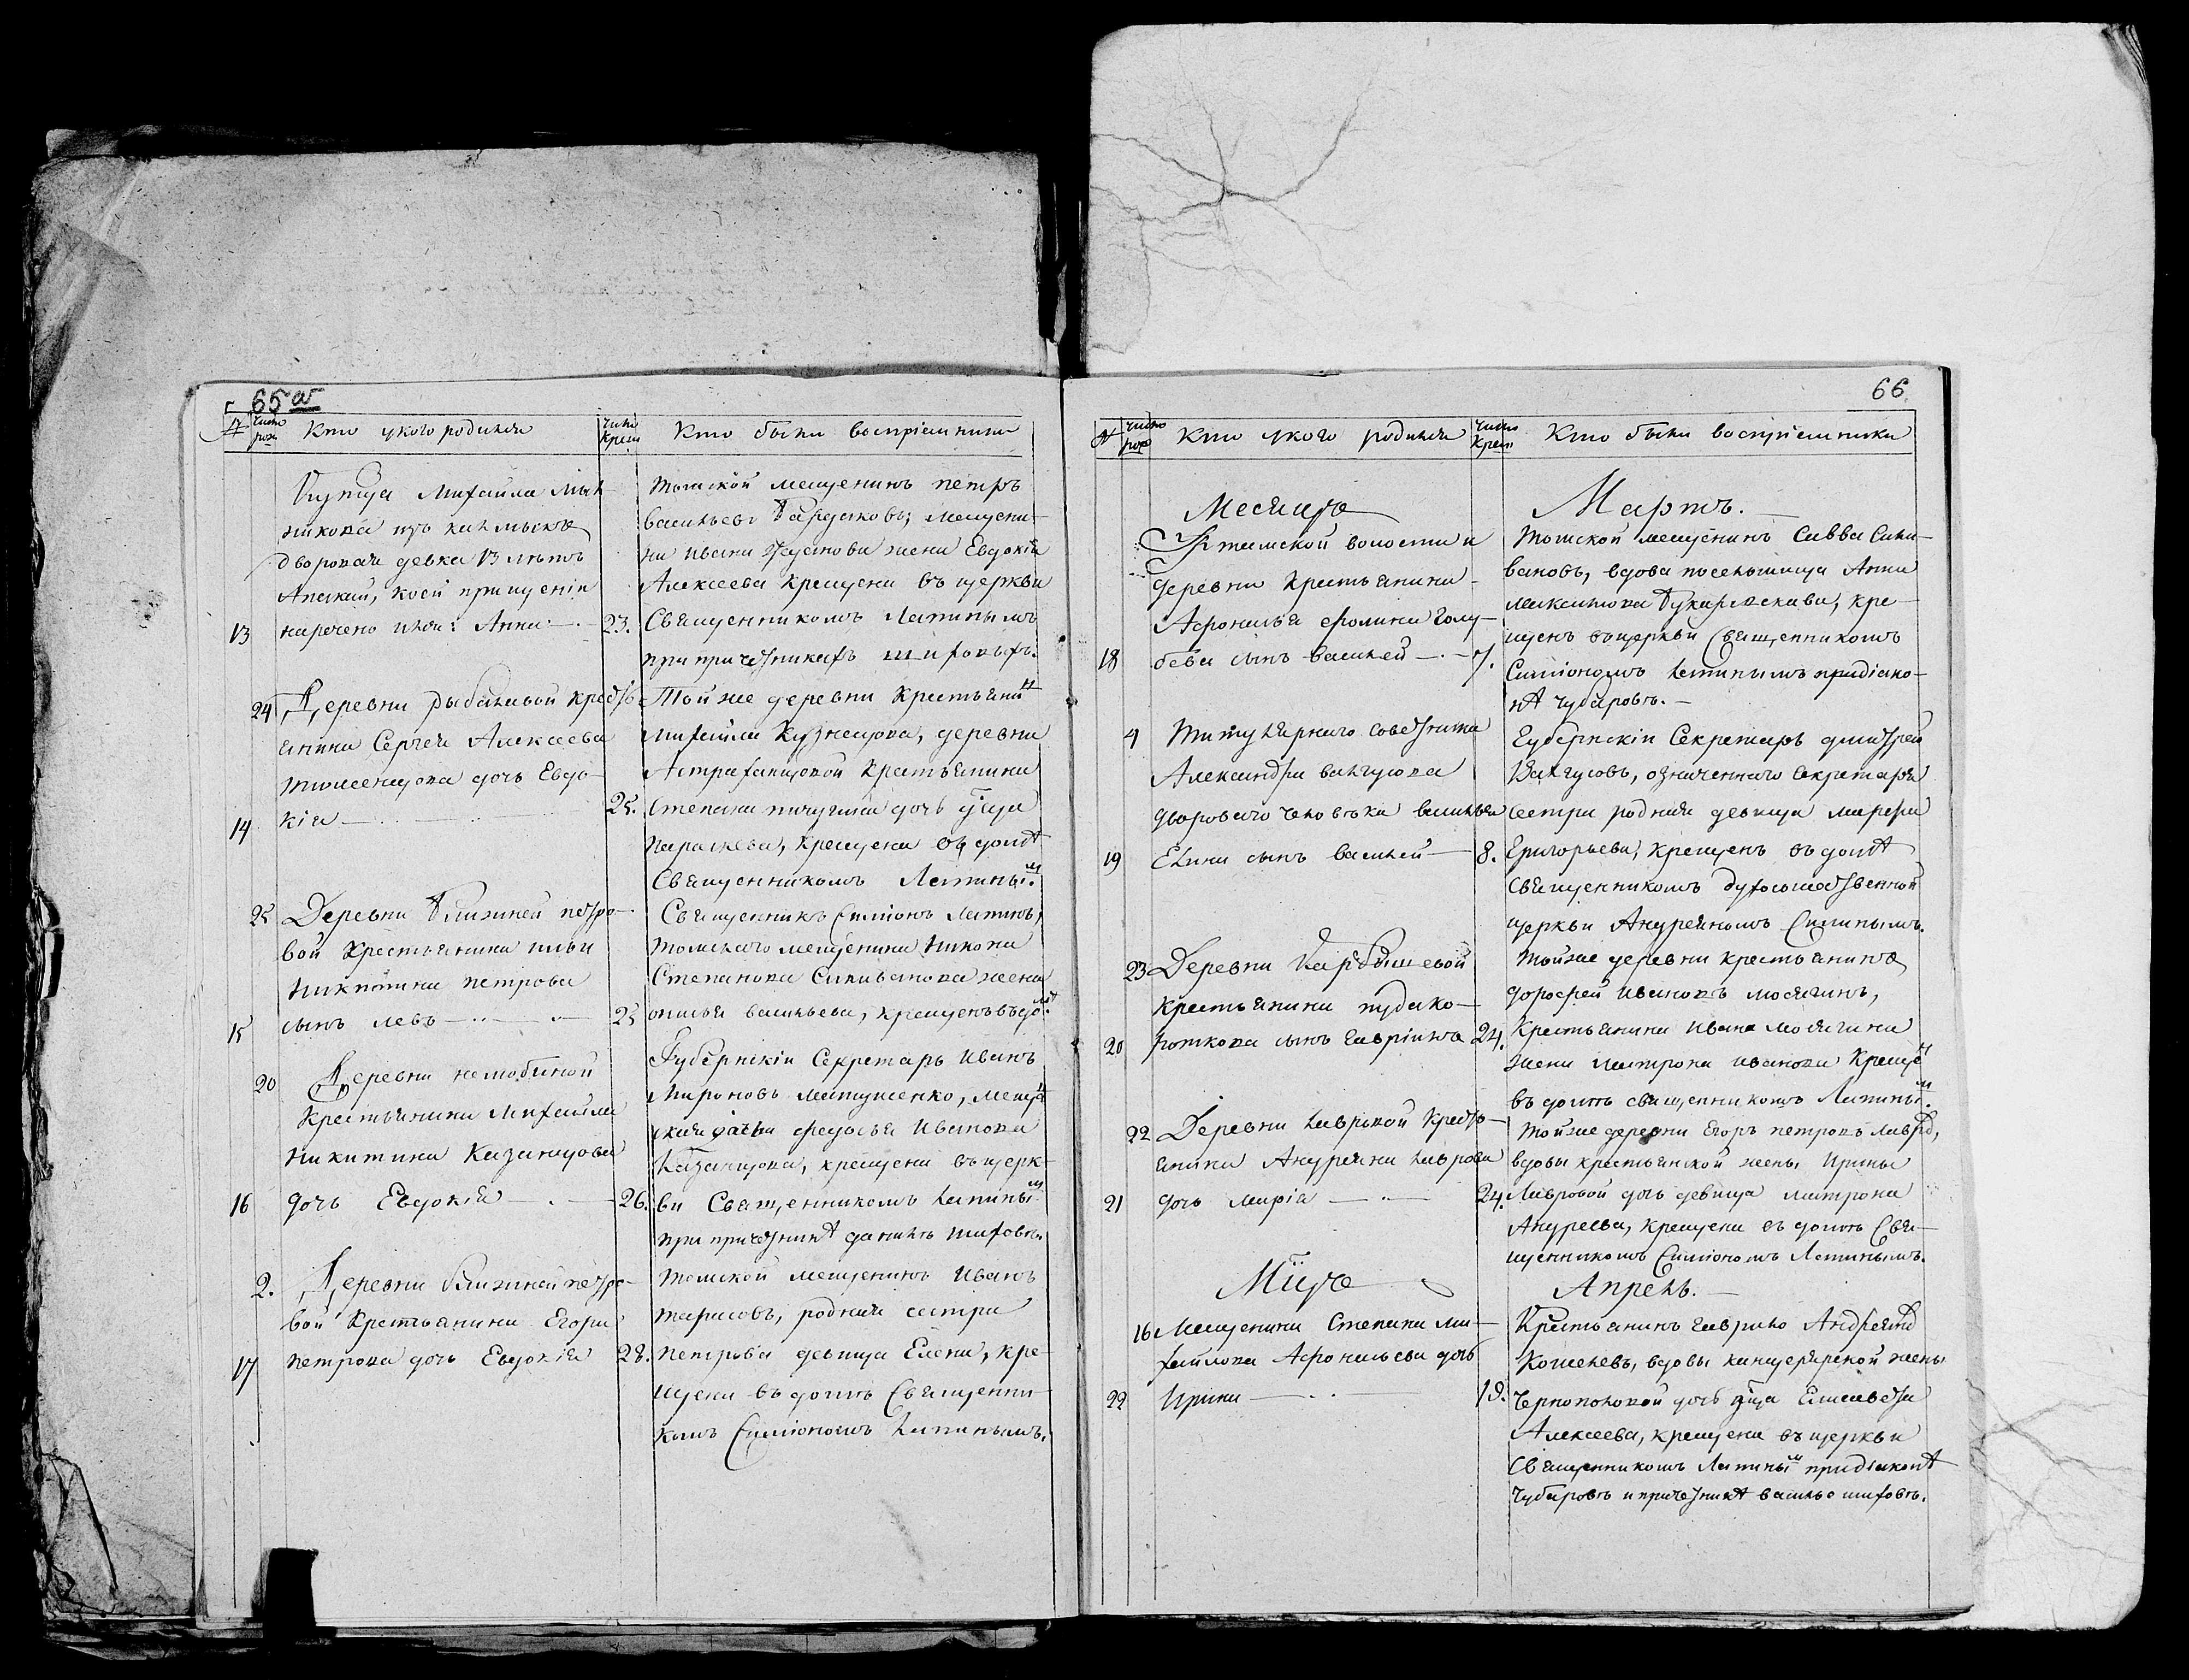 65 об
№
число рож
Кто у кого родился
число крещ
Кто были восприемники
Купца Михайла Мыл-
никова изъ калмыкъ
дворовая девка 13 лѣтъ
коей при крещеніи
13 наречено имя: Анна 23.
Томской мещенинъ петръ
васильевъ мещени-
на ивана жена Евдокія
Алексеева крещена въ церкви
Священникомъ Лапинымъ
при причетникахъ шиховыхъ.
24 Деревни рыбаловой крестья-
янина Сергея Алексеева
дочь Евдо-
14 кія 25.
Той же деревни крестьянин
михайла Кузнецова, деревни
Астраханцовой крестьянина
Степана пичугина дочь д͠ца
параскева, крещена въ домѣ
Священникомъ Лапины.м
25 Деревни Ближней петро-
вой крестьянина ильи
никитина петрова
15 сынъ левъ 25
Священникъ Симіонъ Лапинъ,
томскаго мещенина никона
Степанова Силиванова жена
васильева, крещенъ въ до.мѣ
20 Деревни нелюбиной
крестьянина михайла
никитина Казанцова
16 дочь Евдокія 26.
Губернскіи Секретарь иванъ
мироновъ матушенко, меща
ская дочь федосья иванова
Казанцова, крещена въ церк-
ви Священникомъ лапины.м
при причетникѣ данилѣ шиховѣ.
2. Деревни ближней петро-
вой крестьянина Егора
17 петрова дочь Евдокія 28.
томской мещенинъ иванъ
тарасовъ, родная сестра
петрова девица Елена, кре-
щена въ домѣ Священни-
комъ Симіономъ лапинымъ.
66
№
число рож
Кто у кого родился
число крещ
Кто были восприемники
Месяцъ Мартъ.
волости
деревни крестьянина
Афонасья фомина голу-
18 бева сынъ василей 7.
Томской мещенинъ Савва Сили-
вановъ, вдова поселыцица Анна
максимова кре-
щенъ въ церкви Священникомъ
Симіономъ лапинымъ при діако-
нѣ чубаровѣ.
4 Титулярнаго советника
Александра валгусова
двороваго человѣка василья
19 Елина сынъ василей 8.
Губернскіи Секретарь дмитрей
Валгусовъ, означеннаго секретаря
сестра родная девица марфа
Григорьева, крещенъ въ домѣ
священникомъ духосошественной
церкви Андреяномъ Силинымъ.
23 Деревни Карбышевой
крестьянина худяко-
20 роткова сынъ гавріилъ 24.
той же деревни крестьянинъ
дорофей ивановъ мосягинъ,
крестьянина ивана мосягина
жена матрона иванова креще.н
въ домѣ священникомъ Лапины.м
22 Деревни лавровой кресть-
янина Андреяна лаврова
21 дочь марія 24.
той же деревни Егоръ петровъ лавров,
вдовы крестьянской жены ирины
Лавровой дочь девица матрона
Андреева, крещена въ домѣ Свя-
щенникомъ Симіономъ Лапинымъ.
М͠цъ Апрель.
16 Мещенина Степана ми-
хайлова Афонасьева дочь
22 ирина 19.
Крестьянинъ гаврило Андреянов
Кошелевъ, вдовы канцелярской жены
дочь д͠ца Елисавета
Алексеева, крещена въ церкви
Священникомъ Лапины.м при діаконѣ
чубаровѣ и причетникѣ василье шиховѣ.